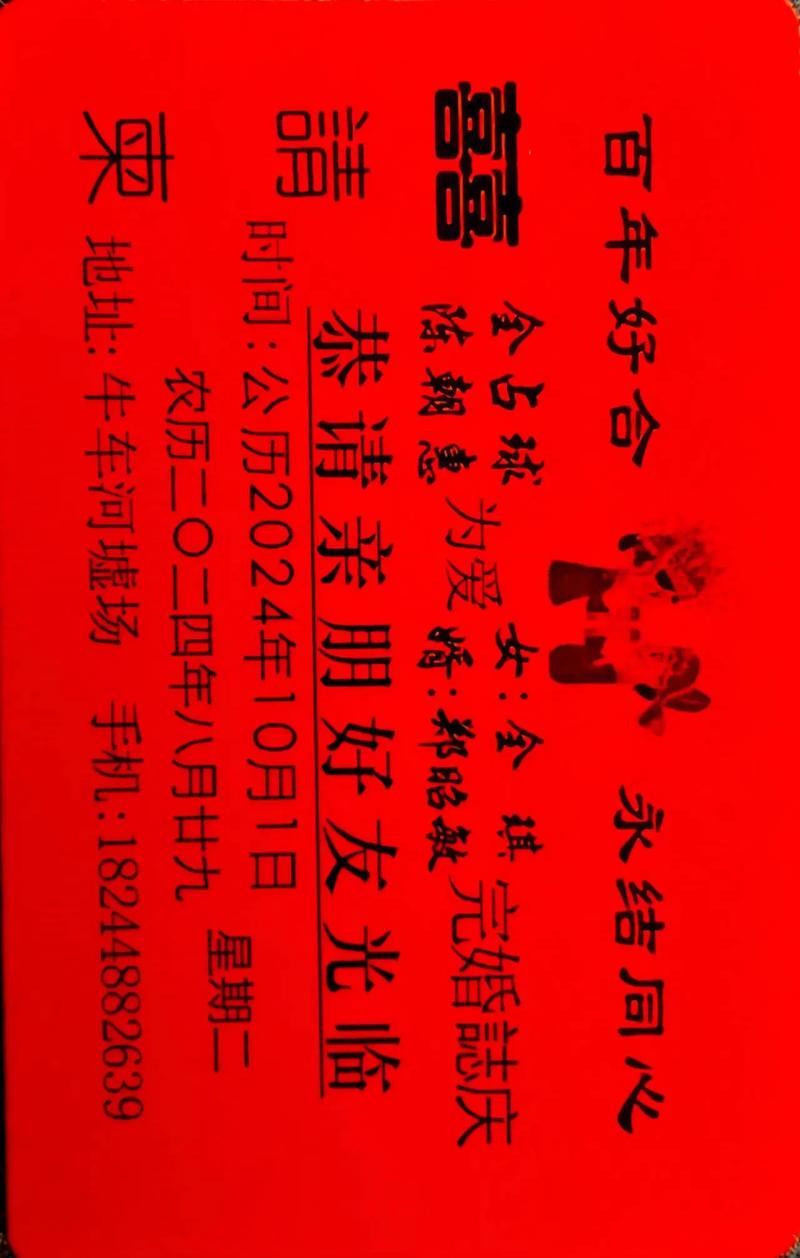 百年好合 永结同心
囍
全占球 女:全 琪
陈朝惠 为爱 婿:郑昭敏 完婚誌庆
恭请亲朋好友光临
請柬
时间:公历2024年10月1日
星期二
农历二〇二四年八月廿九
地址:牛车河墟场 手机:18244882639